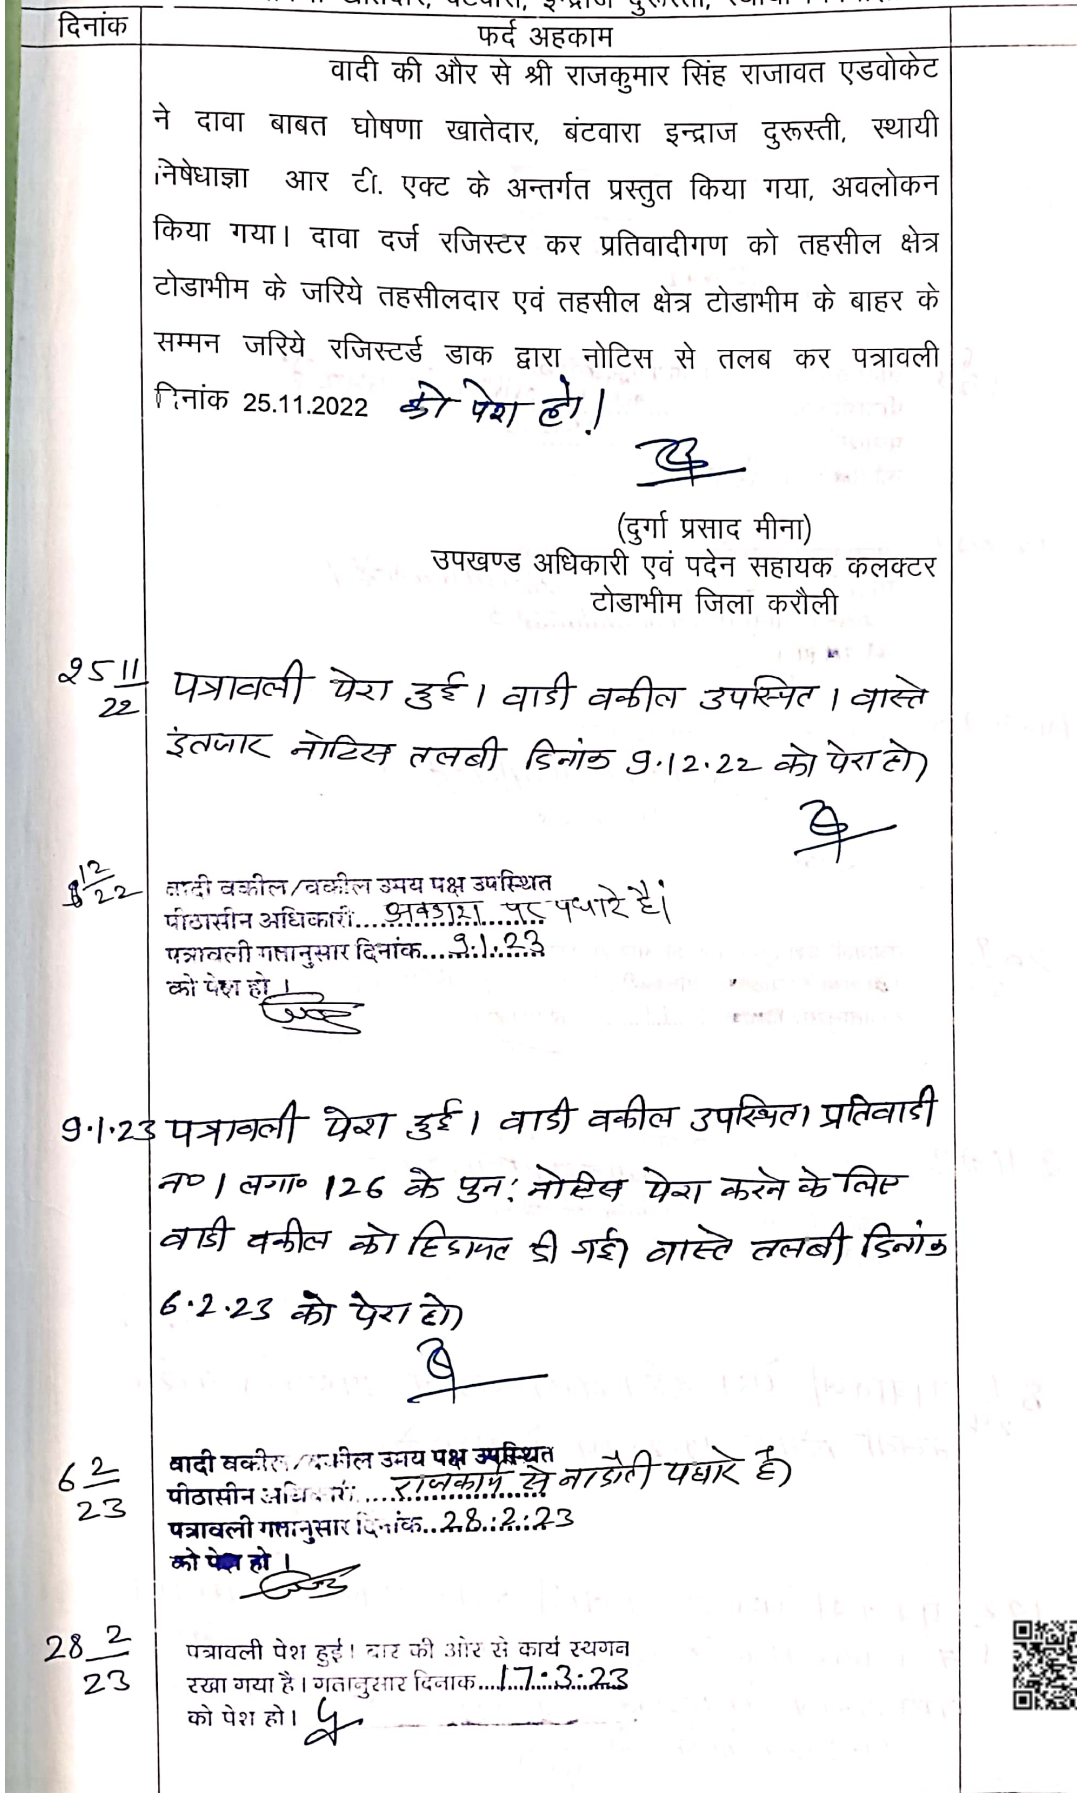 दिनांक
फर्द अहकाम
वादी की और से श्री राजकुमार सिंह राजावत एडवोकेट
ने दावा बाबत घोषणा खातेदार, बंटवारा इन्द्राज दुरूस्ती, स्थायी
निषेधाज्ञा आर टी. एक्ट के अन्तर्गत प्रस्तुत किया गया, अवलोकन
किया गया। दावा दर्ज रजिस्टर कर प्रतिवादीगण को तहसील क्षेत्र
टोडाभीम के जरिये तहसीलदार एवं तहसील क्षेत्र टोडाभीम के बाहर के
सम्मन जरिये रजिस्टर्ड डाक द्वारा नोटिस से तलब कर पत्रावली
दिनांक 25.11.2022 को पेश हो।
(दुर्गा प्रसाद मीना)
उपखण्ड अधिकारी एवं पदेन सहायक कलक्टर
टोडाभीम जिला करौली
25 11/22 पत्रावली पेश हुई। वादी वकील उपस्थित। वास्ते
इंतजार नोटिस तलबी दिनांक 9.12.22 को पेश हो।
12/22 वादी वकील/वकील उभय पक्ष उपस्थित
पीठासीन अधिकारी... अवकाश पर पधारे है।
पत्रावली गतानुसार दिनांक.... 9.1.23
को पेश हो।
9.1.23 पत्रावली पेश हुई। वादी वकील उपस्थित। प्रतिवादी
न० 1 लगा० 126 के पुन: नोटिस पेश करने के लिए
वादी वकील को हिदायत दी गई। वास्ते तलबी दिनांक
6.2.23 को पेश हो।
6 2/23 वादी वकील/वकील उभय पक्ष उपस्थित
पीठासीन अधिकारी.... राजकार्य से नादौती पधारे है।
पत्रावली गतानुसार दिनांक.. 28.2.23
को पेश हो।
28 2/23 पत्रावली पेश हुई। बार की ओर से कार्य स्थगन
रखा गया है। गतानुसार दिनाक... 17.3.23
को पेश हो।